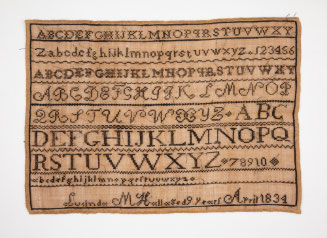 ABCDEFGHIJKLMNOPQRSTUVWXY
Zabcdefghijklmnopqrstuvwxyz.123456
ABCDEFGHIJKLMNOPQRSTUVWXY
ABCDEFGHIJKLMNOP
QRSTUVWXYZ ABC
DEFGHIJKLMNOPQ
RSTUVWXYZ 78910
abcdefghijklmnopqrstuvwxyz
Lucinda M Hall aged 9 years April 1834